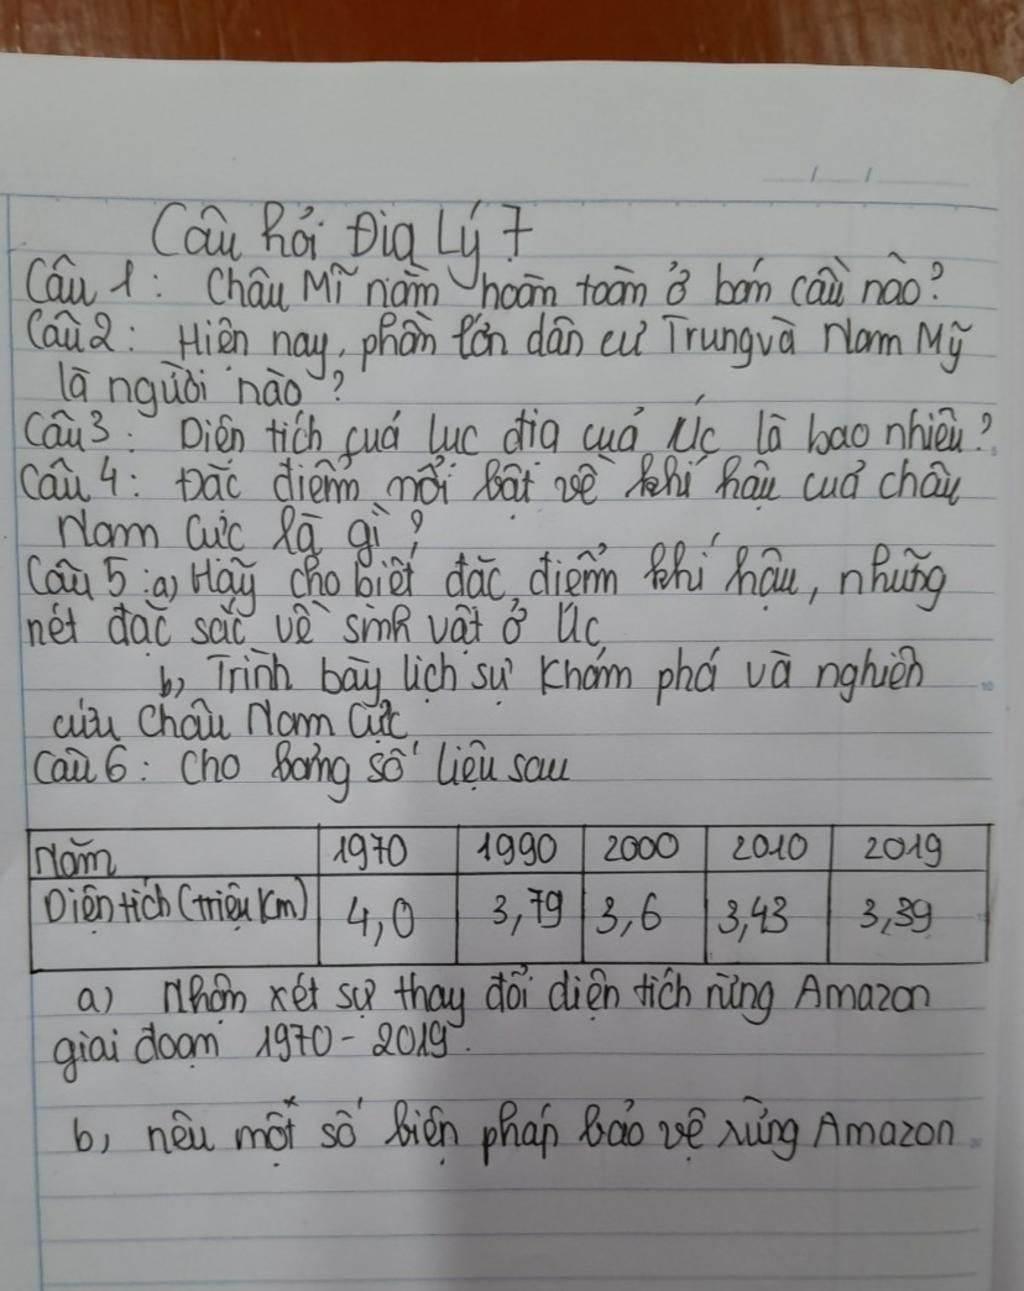 Câu hỏi Địa Lý 7
Câu 1: Châu Mĩ nằm hoàn toàn ở bán cầu nào?
Câu 2: Hiện nay, phần lớn dân cư Trung và Nam Mỹ
là người nào?
Câu 3: Diện tích cuả lục địa cuả Úc là bao nhiêu?
Câu 4: Đặc điểm nổi bật về khí hậu cuả châu
Nam Cực là gì?
Câu 5: a) Hãy cho biết đặc điểm khí hậu, những
nét đặc sắc về sinh vật ở Úc
b, Trình bày lịch sự khám phá và nghiên
cứu Châu Nam Cực
Câu 6: Cho bảng số liệu sau
Năm 1970 1990 2000 2010 2019
Diện tích (triệu Km) 4,0 3,79 3,6 3,43 3,39
a) Nhận xét sự thay đổi diện tích rừng Amazon
giai đoạn 1970 - 2019.
b, nêu một số biện pháp bảo vệ rừng Amazon